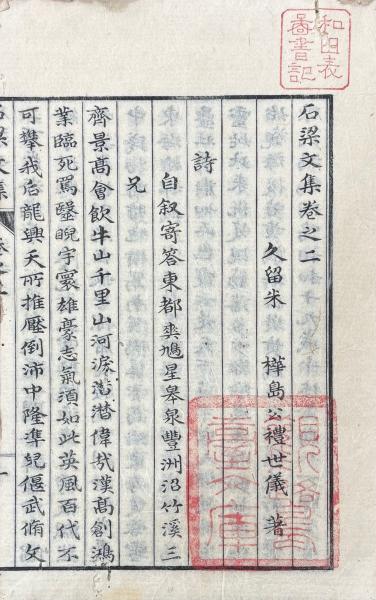 和田表
啚書記
石梁文集卷之二
久留米 樺島公禮世儀 著
詩
自叙寄答東都鳩星皐泉豐洲沼竹溪三
兄
齊景高會飲牛山千里山河淚潸潸偉哉漢高創鴻
業臨死罵毉睨宇寰雄豪志氣須如此英風百代不
可攀我后龍興天所推壓倒沛中隆準兒偃武脩文